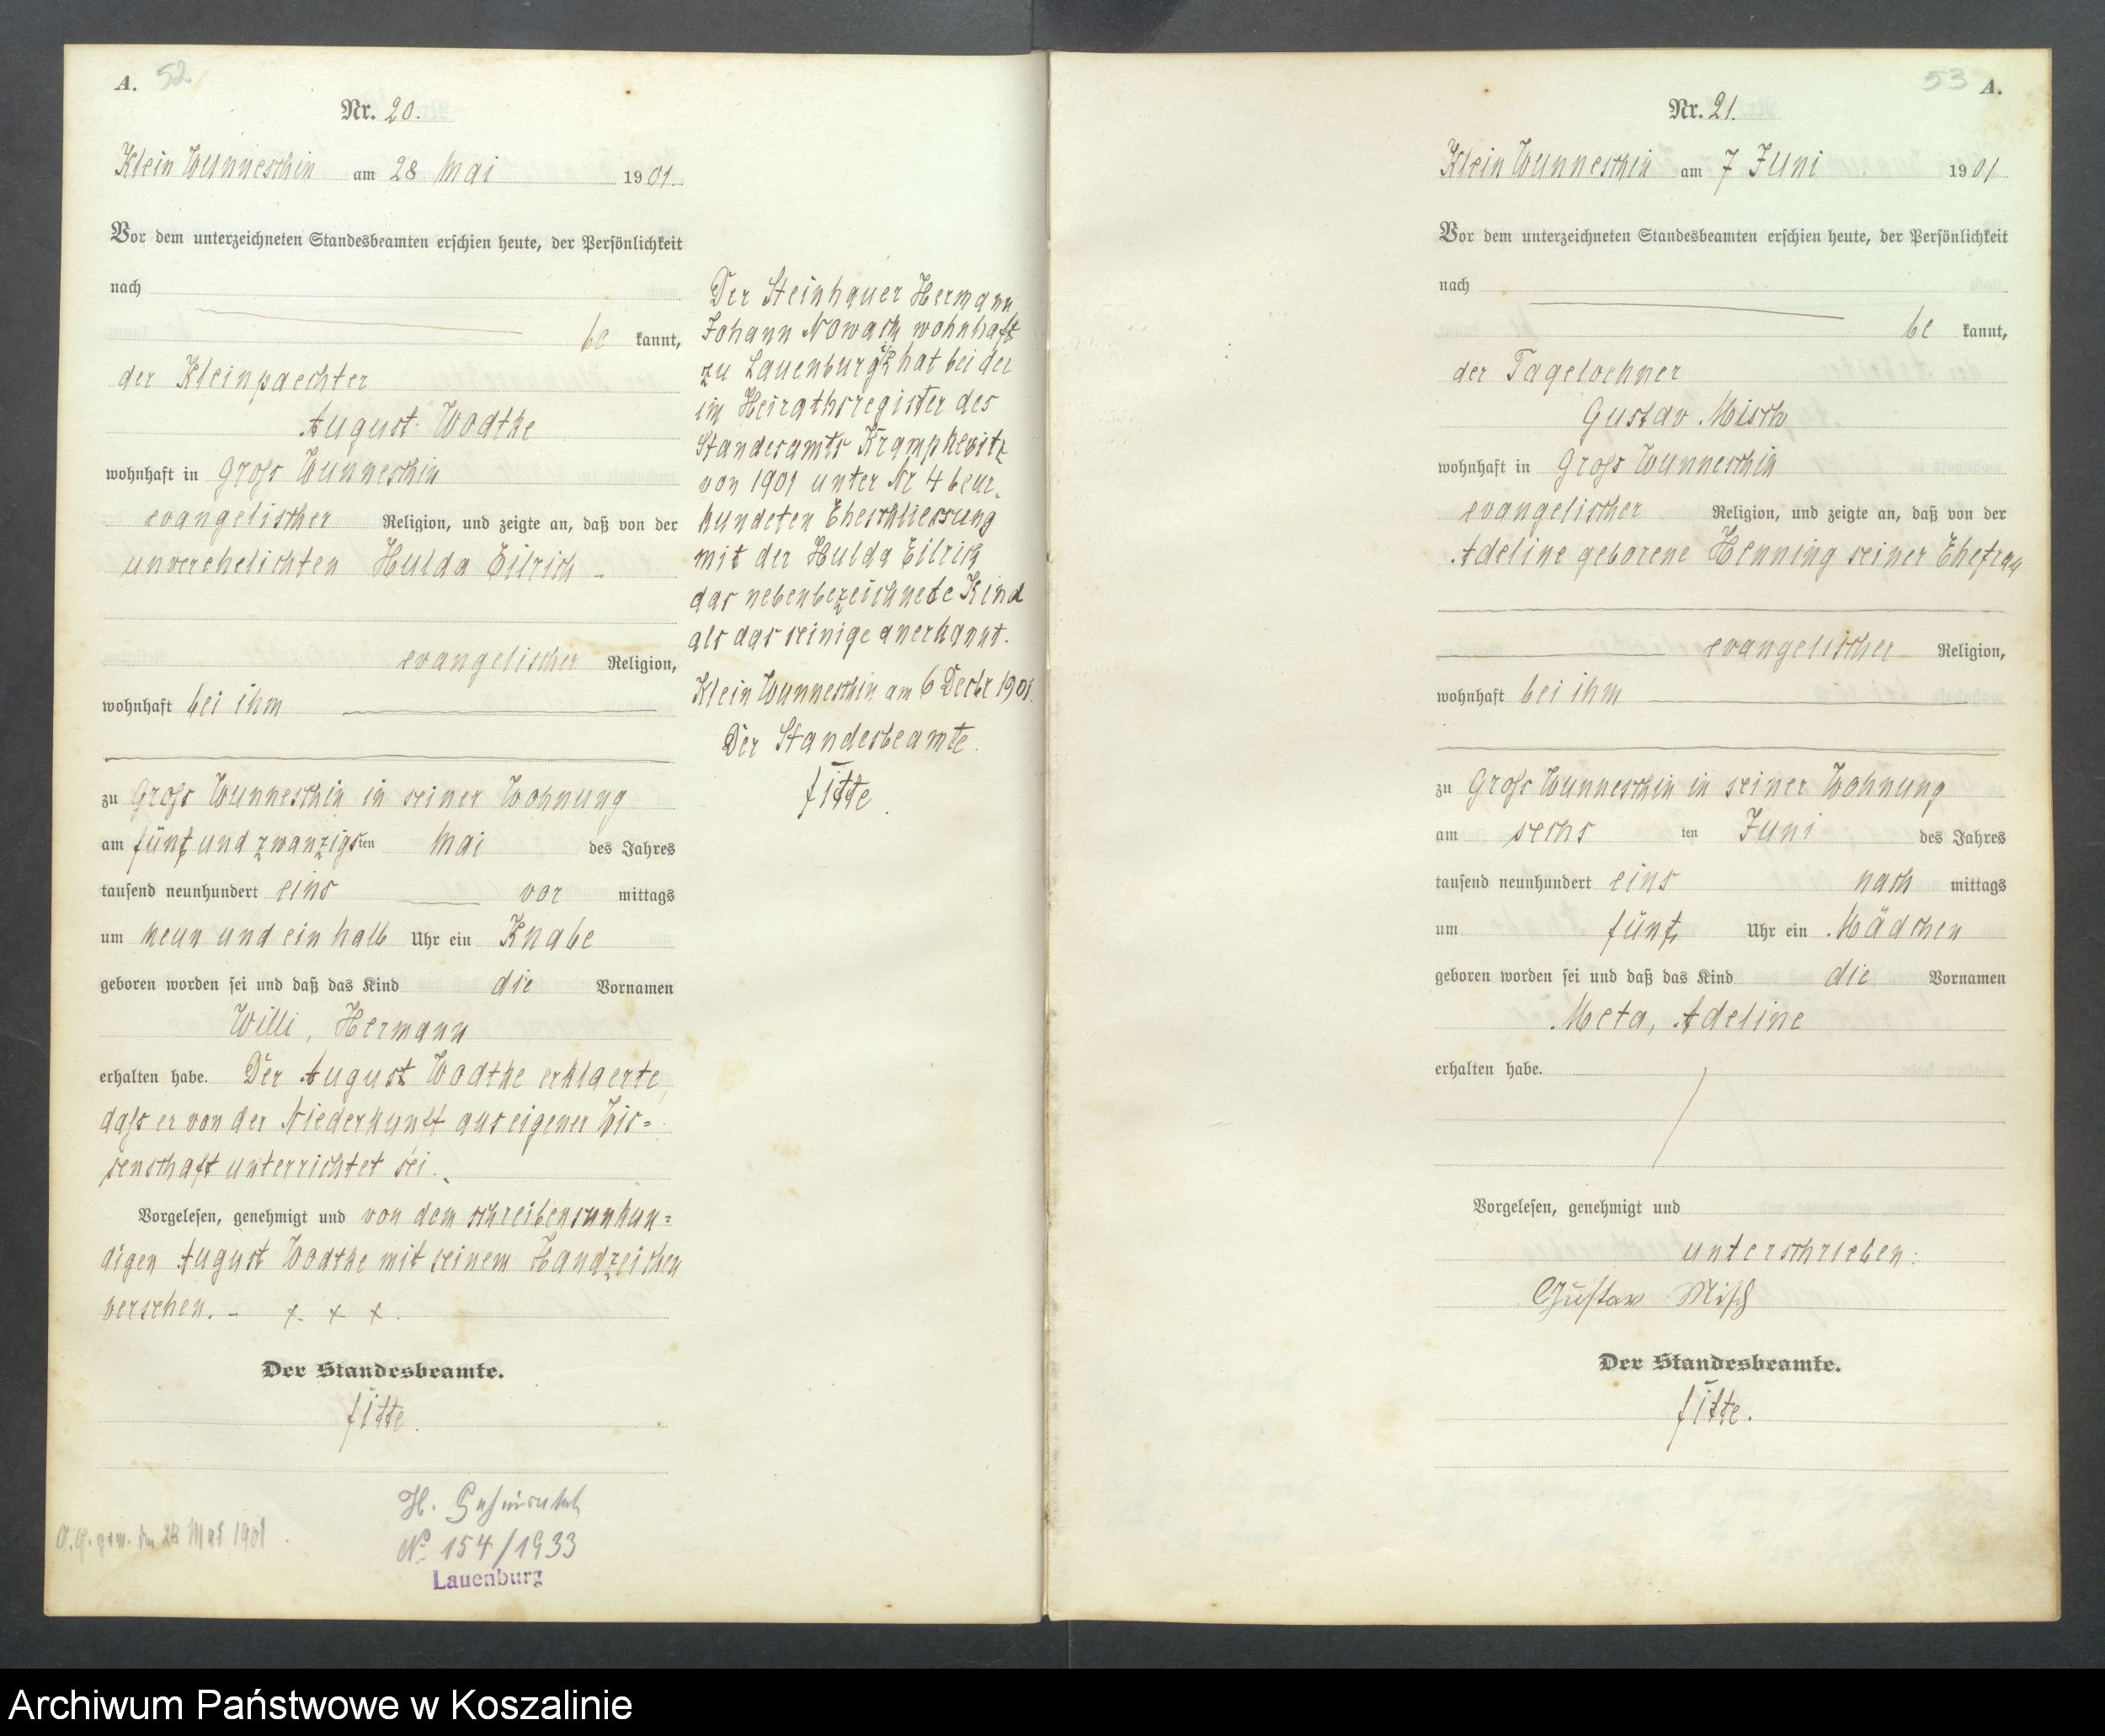 A. 52
Nr. 20.
Klein Wunneschin am 28 Mai 1901.
Vor dem unterzeichneten Standesbeamten erschien heute, der Persönlichkeit
nach
be kannt,
der Kleinpaechter
August Wodthe
wohnhaft in Groß Wunneschin
evangelischer Religion, und zeigte an, daß von der
unverehelichten Hulda Eilrich
evangelischer Religion,
wohnhaft bei ihm
zu Groß Wunneschin in seiner Wohnung
am fünf und zwanzigsten Mai des Jahres
tausend neunhundert eins vor mittags
um neun und ein halb Uhr ein Knabe
geboren worden sei und daß das Kind die Vornamen
Willi, Hermann
erhalten habe. Der August Wodthe erklaerte,
daß er von der Niederkunft aus eigener Wis=
senschaft unterrichtet sei.
Vorgelesen, genehmigt und von dem schreibensunkun=
digen August Wodthe mit seinem Handzeichen
versehen. - x x x.
Der Standesbeamte.
Fitte.
H.
No 154/1933
Lauenburg
28 Mai 1901
Der Steinhauer Hermann
Johann Nowack wohnhaft
zu Lauenburg i/P hat bei der
im Heirathsregister des
Standesamts Krampkewitz
von 1901 unter Nr 4 beur-
kundeten Eheschliessung
mit der Hulda Eilrich
das nebenbezeichnete Kind
als das seinige anerkannt.
Klein Wunneschin am 6 Decbr 1901.
Der Standesbeamte.
Fitte.
53 A.
Nr. 21.
Klein Wunneschin am 7 Juni 1901
Vor dem unterzeichneten Standesbeamten erschien heute, der Persönlichkeit
nach
be kannt,
der Tageloehner
Gustav Misch
wohnhaft in Groß Wunneschin
evangelischer Religion, und zeigte an, daß von der
Adeline geborene Henning seiner Ehefrau
evangelischer Religion,
wohnhaft bei ihm
zu Groß Wunneschin in seiner Wohnung
am sechs ten Juni des Jahres
tausend neunhundert eins nach mittags
um fünf Uhr ein Mädchen
geboren worden sei und daß das Kind die Vornamen
Meta, Adeline
erhalten habe.
Vorgelesen, genehmigt und
unterschrieben:
Gustav Misch
Der Standesbeamte.
Fitte.
Archiwum Państwowe w Koszalinie